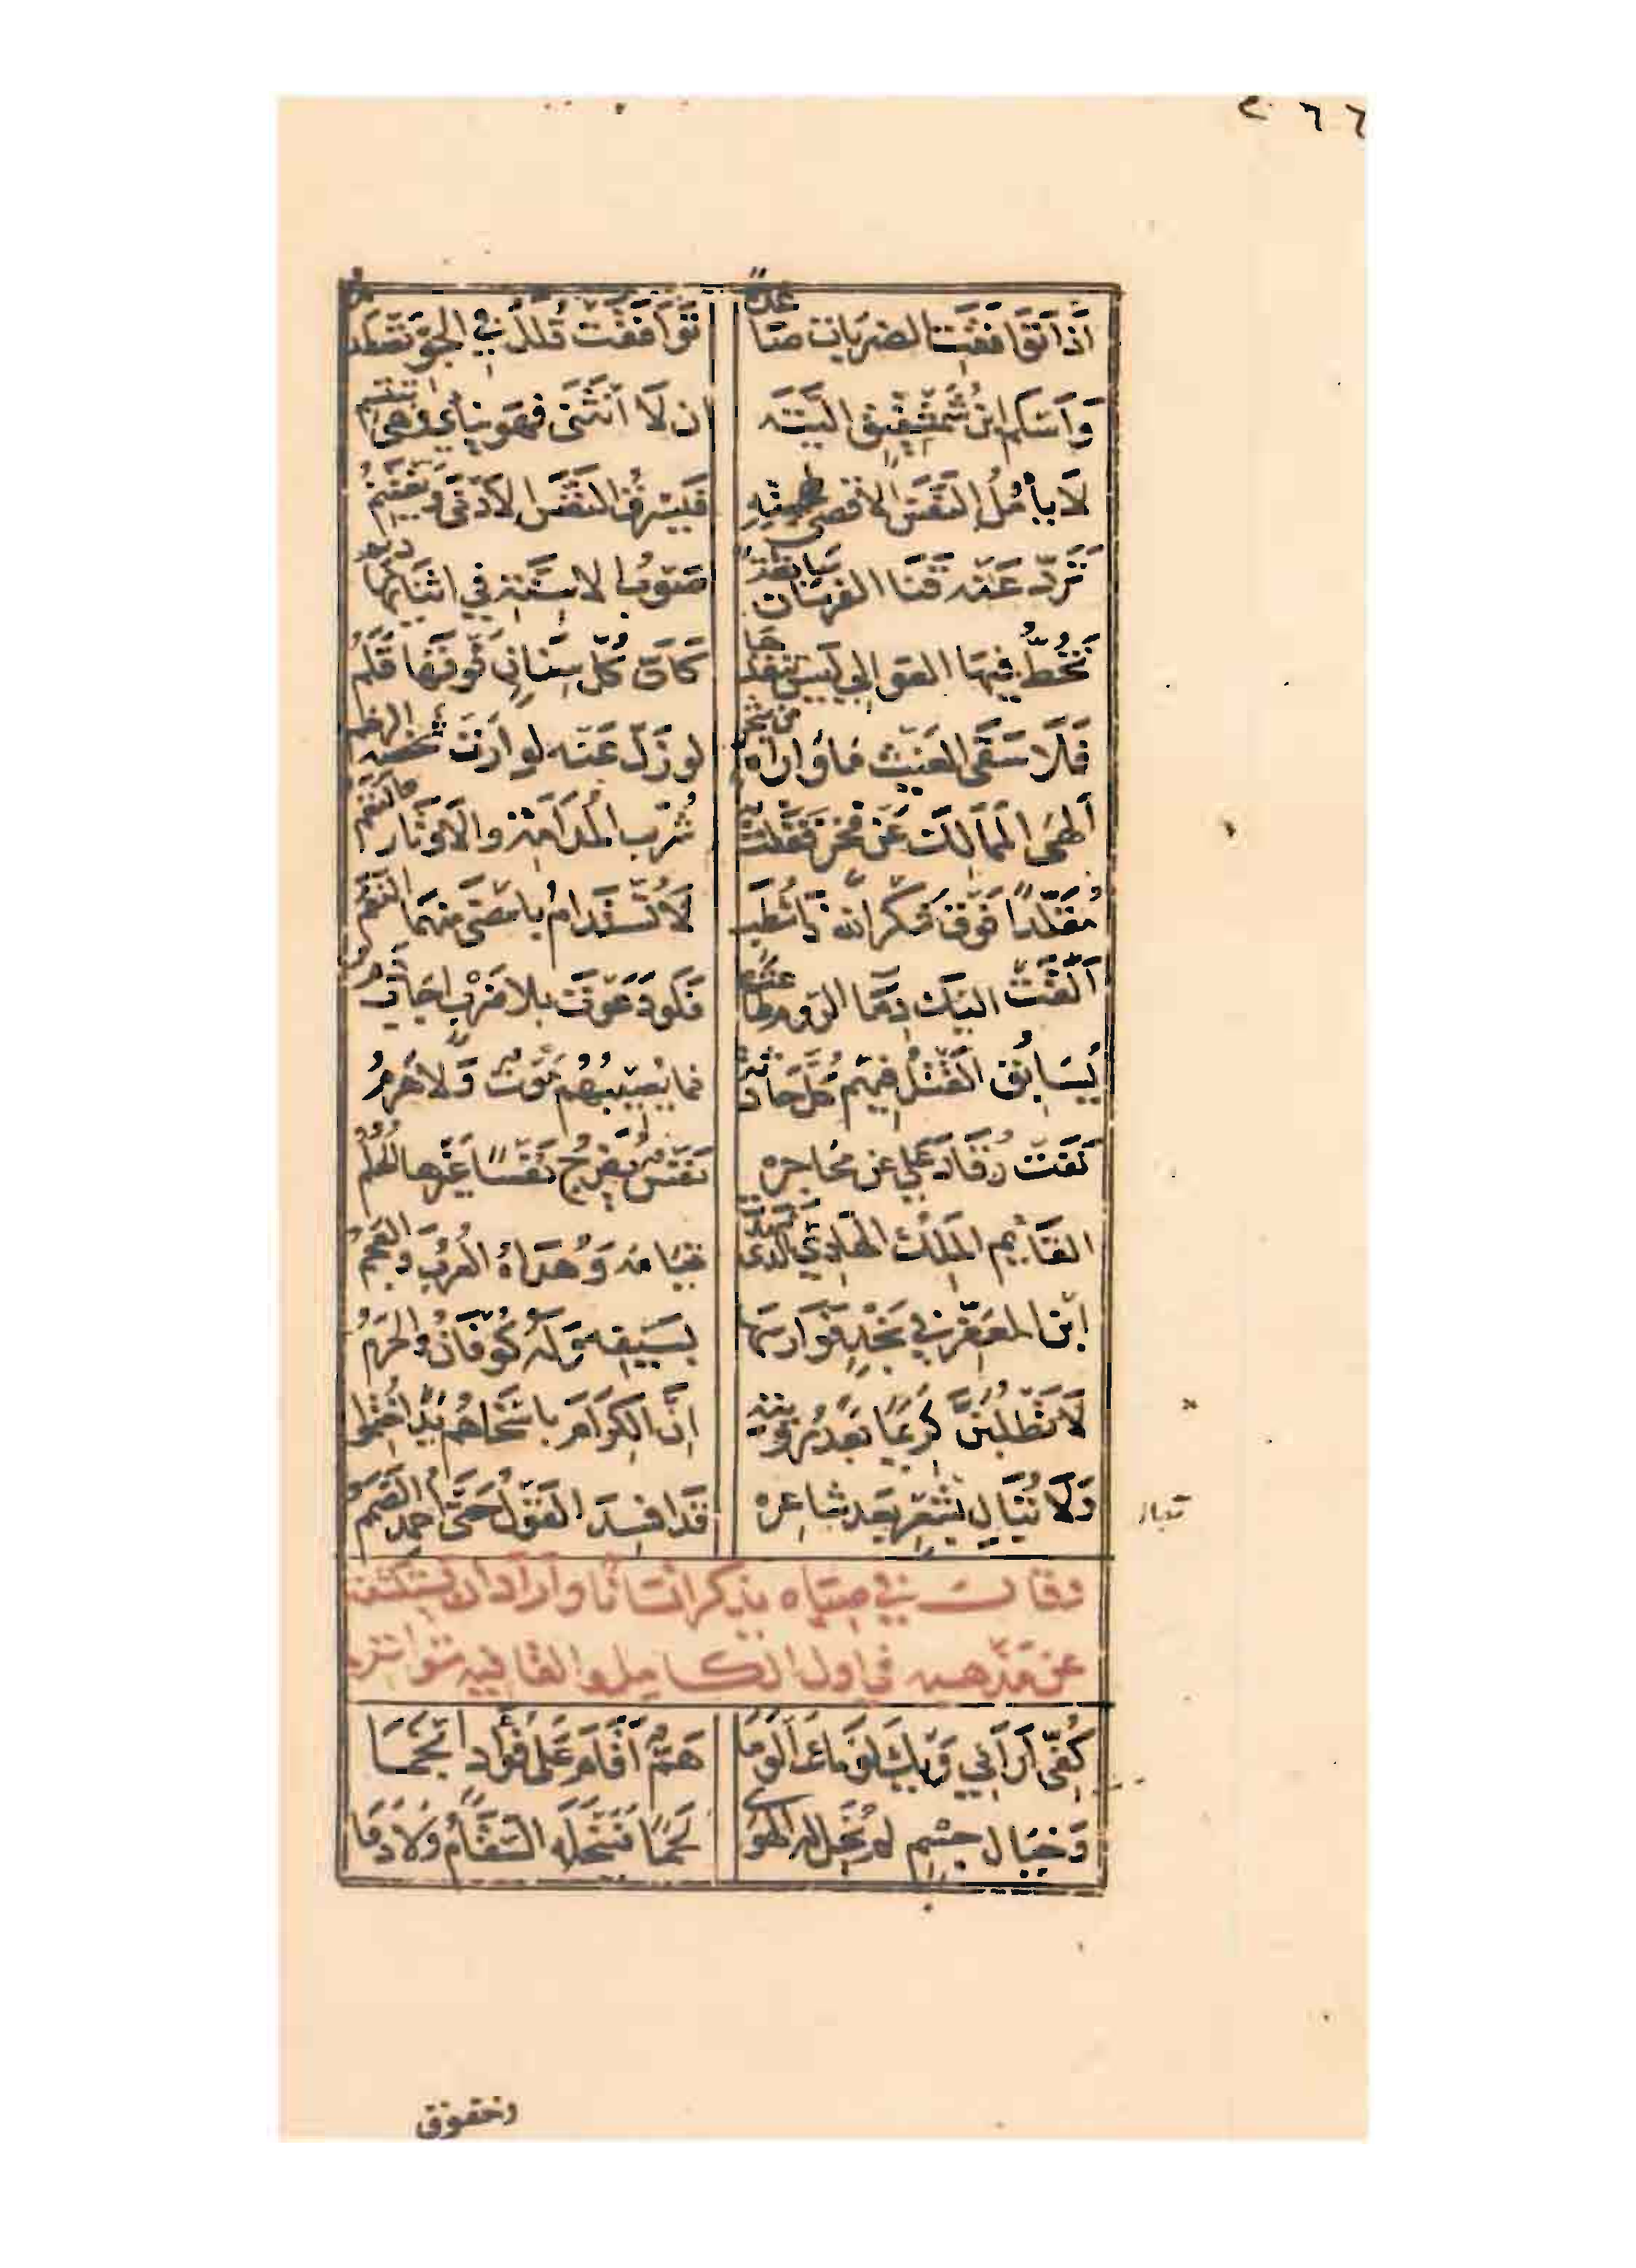 ٢٦٦
إذا توافقت الضربات صاعدة توافقت قلل في الجو تصطدم
وأسلم ابن شمشقيق أليته ان لا انثنى فهو ينأى وهي تبتسم
لا يأمل النفس الأقصى لمهجته فيسرق النفس الأدنى ويغتنم
ترد عنه قنا الفرسان سابغة صوب الاسنة في اثنائها ديم
تخط فيها العوالي ليس تنفذها كأن كل سنان فوقها قلم
فلا سقى الغيث ما واراه من شجر لو زل عنه لوارت شخصه الرخم
ألهى الممالك عن فخر قفلت به شرب المدامة والاوتار والنغم
مقلدا فوق شكر الله ذا شطب لا تستدام بامضى منهما النعم
ألقت اليك دما الروم طاعتها فلو دعوت بلا ضرب اجاب دم
يسابق القتل فيهم كل حادثة فما يصيبهم موت ولا هرم
نفت رقاد علي عن محاجره نفس يفرج نفسا غيرها الحلم
القائم الملك الهادي الذي شهدت قيامه وهداه العرب والعجم
ابن المعفر في نجد فوارسها بسيفه وله كوفان والحرم
لا تطلبن كريما بعد رؤيته ان الكرام باسخاهم يدا ختموا
ولا تبال بشعر بعد شاعره قد افسد القول حتى احمد الصمم
وقال في صباه يذكر انسانا واراد ان يستكشفه
عن مذهبه في اول الكامل والقافيه متواتره
كفي أراني ويك لومك ألوما هم أقام على فؤاد انجما
وخيال جسم لم يخل له الهوى لحما فينحله السقام ولا دما
وخفوق